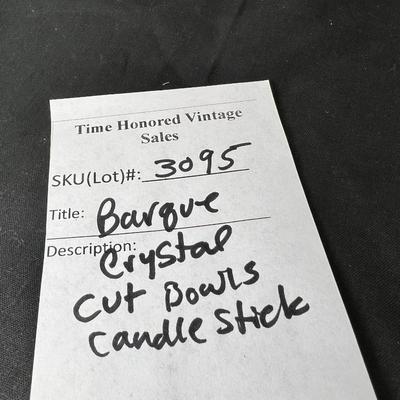 Time Honored Vintage
Sales
SKU(Lot)#: 3095
Title: Barque
Description:
Crystal
Cut Bowls
Candle Stick